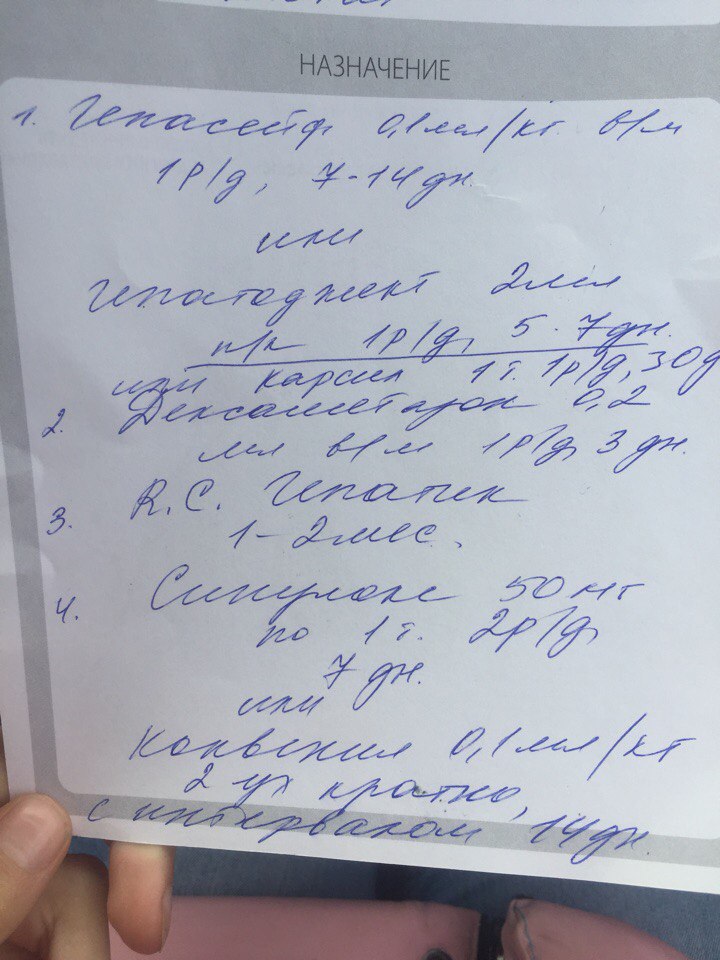 НАЗНАЧЕНИЕ
1. Гепасейф 0,1мл/кг. в/м
1р/д, 7-14дн.
или
Гепатоджект 2мл
п/к 1р/д, 5-7дн.
или карсил 1т. 1р/д, 30д
2. Дексаметазон 0,2
мл в/м 1р/д, 3 дн.
3. R.C. Гепатик
1-2мес.
4. Синулокс 50мг
по 1т. 2р/д,
7 дн.
или
Конвения 0,1мл/кг
2ух кратно,
с интервалом 14дн.